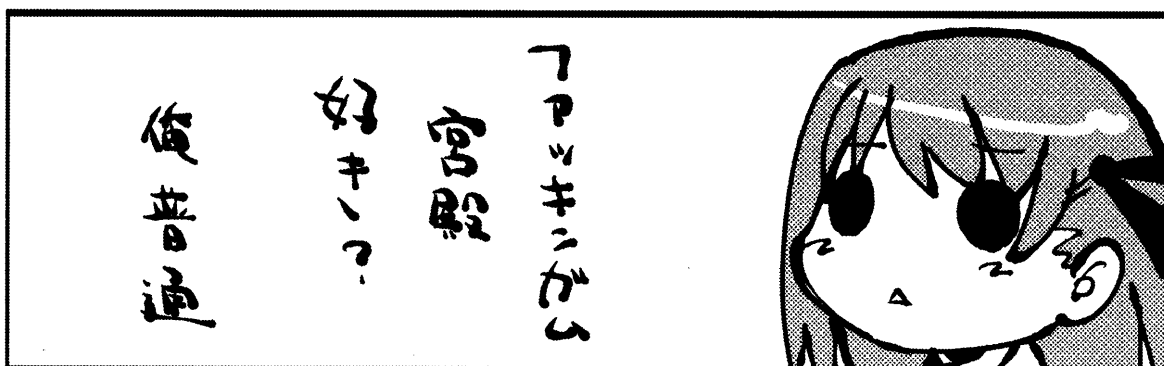 ファッキンガム
宮殿
好キ〳？
俺普通